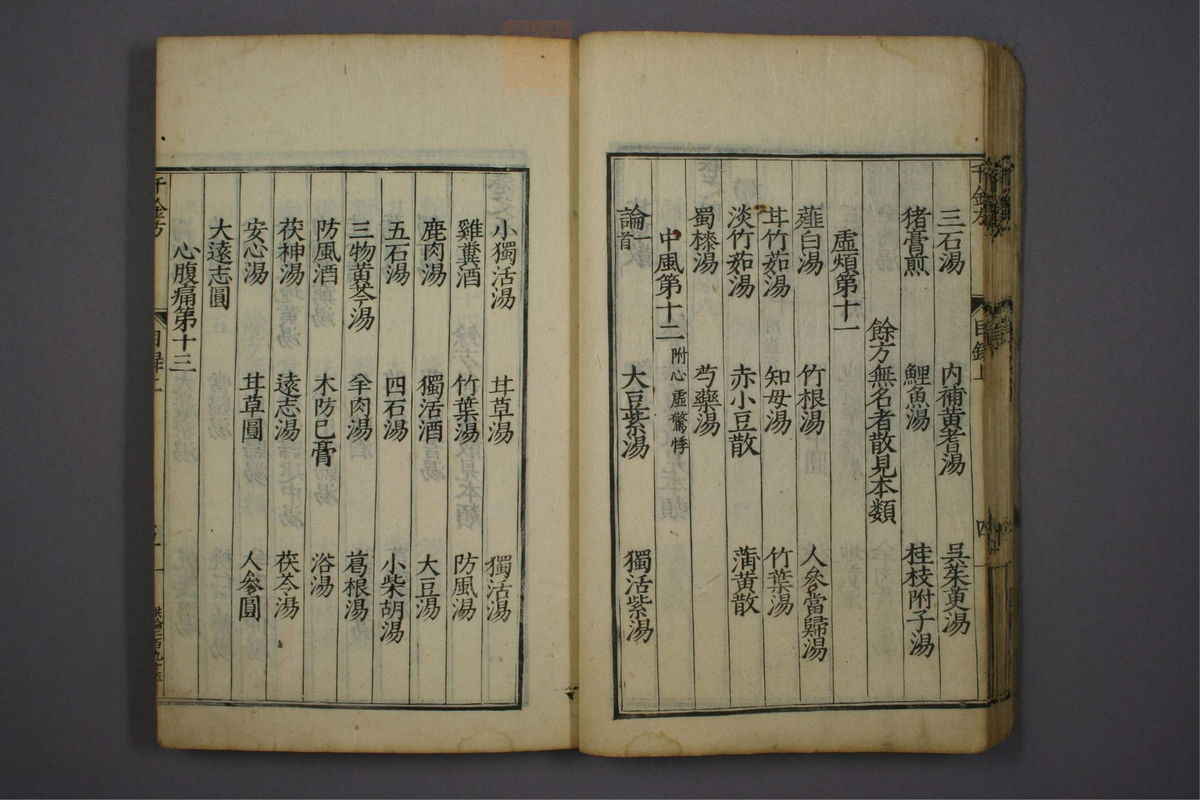 千金方 目錄上 四
三石湯 内補黄耆湯 呉茱萸湯
猪膏煎 鯉魚湯 桂枝附子湯
餘方無名者散見本類
虛煩第十一
薤白湯 竹根湯 人參當歸湯
甘竹茹湯 知母湯 竹葉湯
淡竹茹湯 赤小豆散 蒲黄散
蜀椒湯 芍藥湯
中風第十二 附心虛驚悸
論一首 大豆紫湯 獨活紫湯
小獨活湯 甘草湯 獨活湯
雞糞酒 竹葉湯 防風湯
鹿肉湯 獨活酒 大豆湯
五石湯 四石湯 小柴胡湯
三物黄芩湯 羊肉湯 葛根湯
防風酒 木防已膏 浴湯
茯神湯 遠志湯 茯苓湯
安心湯 甘草圓 人參圓
大遠志圓
心腹痛第十三
千金方